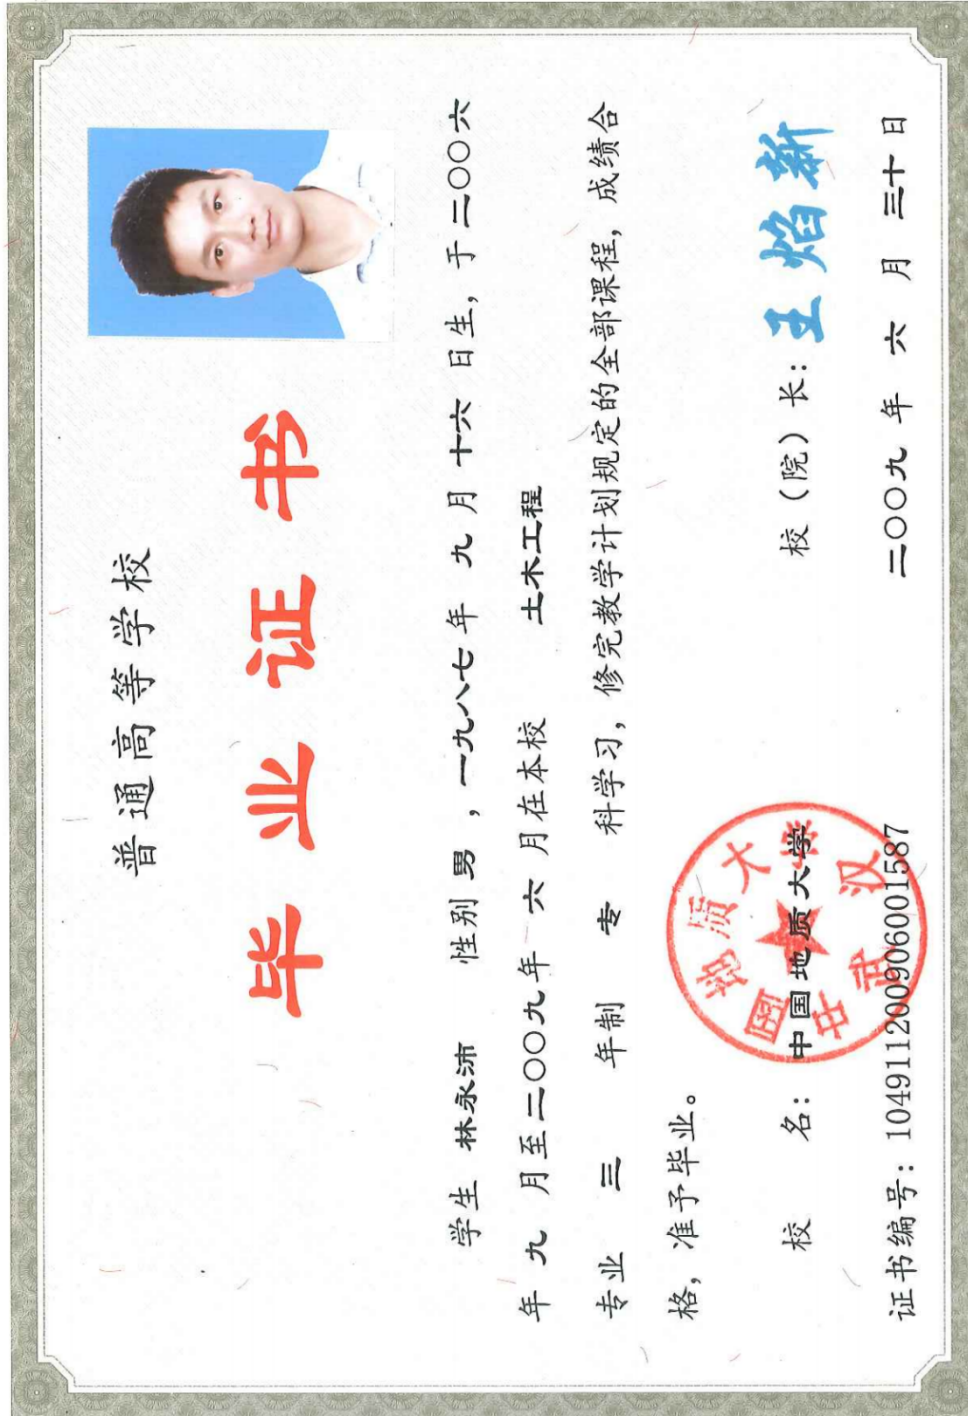 普通高等学校
毕业证书
学生 林永沛 性别 男 ，一九八七 年 九 月 十六 日生，于 二〇〇六
年 九 月至 二〇〇九 年 六 月在本校 土木工程
专业 三 年制 专 科学习，修完教学计划规定的全部课程，成绩合
格，准予毕业。
校 名：中国地质大学
中国地质大学
武汉
校（院）长：王焰新
证书编号：104911200906001587
二〇〇九 年 六 月 三十 日